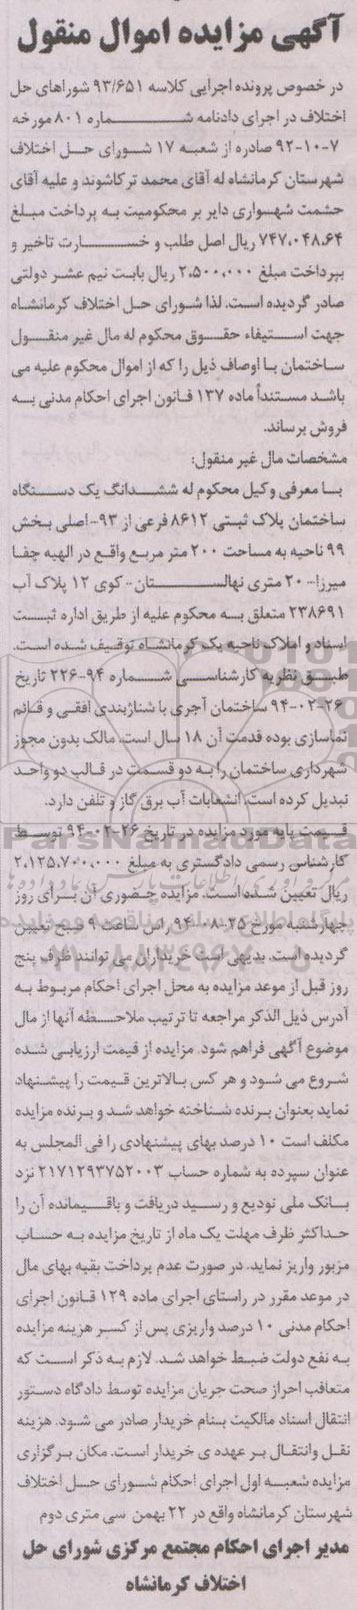 آگهی مزایده اموال منقول
در خصوص پرونده اجرایی کلاسه ۹۳/۶۵۱ شوراهای حل
اختلاف در اجرای دادنامه شماره ۸۰۱ مورخه
۹۲-۱۰-۷ صادره از شعبه ۱۷ شورای حل اختلاف
شهرستان کرمانشاه له آقای محمد ترکاشوند و علیه آقای
حشمت شهسواری دایر بر محکومیت به پرداخت مبلغ
۷۴۷،۰۴۸،۶۴ ریال اصل طلب و خسارت تاخیر و
بپرداخت مبلغ ۲،۵۰۰،۰۰۰ ریال بابت نیم عشر دولتی
صادر گردیده است. لذا شورای حل اختلاف کرمانشاه
جهت استیفاء حقوق محکوم له مال غیر منقول
ساختمان با اوصاف ذیل را که از اموال محکوم علیه می
باشد مستنداً ماده ۱۳۷ قانون اجرای احکام مدنی به
فروش برساند.
مشخصات مال غیر منقول:
با معرفی وکیل محکوم له ششدانگ یک دستگاه
ساختمان پلاک ثبتی ۸۶۱۲ فرعی از ۹۳- اصلی بخش
۹۹ ناحیه به مساحت ۲۰۰ متر مربع واقع در الهیه چقا
میرزا- ۲۰ متری نهالستان- کوی ۱۲ پلاک آب
۲۳۸۶۹۱ متعلق به محکوم علیه از طریق اداره ثبت
اسناد و املاک ناحیه یک کرمانشاه توقیف شده است.
طبق نظریه کارشناسی شماره ۹۴-۲۲۶ تاریخ
۹۴-۰۲-۲۶ ساختمان آجری با شناژبندی افقی و قائم
نماسازی بوده قدمت آن ۱۸ سال است. مالک بدون مجوز
شهرداری ساختمان را به دو قسمت در قالب دو واحد
تبدیل کرده است. انشعابات آب برق گاز و تلفن دارد.
قیمت پایه مورد مزایده در تاریخ ۲۶-۰۲-۹۴ توسط
کارشناس رسمی دادگستری به مبلغ ۲،۱۲۵،۷۰۰،۰۰۰
ریال تعیین شده است. مزایده حضوری آن برای روز
چهارشنبه مورخ ۲۵-۰۸-۹۴ راس ساعت ۹ صبح تعیین
گردیده است. بدیهی است خریداران می توانند ظرف پنج
روز قبل از موعد مزایده به محل اجرای احکام مربوط به
آدرس ذیل الذکر مراجعه تا ترتیب ملاحظه آنها از مال
موضوع آگهی فراهم شود. مزایده از قیمت ارزیابی شده
شروع می شود و هر کس بالاترین قیمت را پیشنهاد
نماید بعنوان برنده شناخته خواهد شد و برنده مزایده
مکلف است ۱۰ درصد بهای پیشنهادی را فی المجلس به
عنوان سپرده به شماره حساب ۲۱۷۱۲۹۳۷۵۲۰۰۳ نزد
بانک ملی تودیع و رسید دریافت و باقیمانده آن را
حداکثر ظرف مهلت یک ماه از تاریخ مزایده به حساب
مزبور واریز نماید. در صورت عدم پرداخت بقیه بهای مال
در موعد مقرر در راستای اجرای ماده ۱۲۹ قانون اجرای
احکام مدنی ۱۰ درصد واریزی پس از کسر هزینه مزایده
به نفع دولت ضبط خواهد شد. لازم به ذکر است که
متعاقب احراز صحت جریان مزایده توسط دادگاه دستور
انتقال اسناد مالکیت بنام خریدار صادر می شود. هزینه
نقل وانتقال بر عهده ی خریدار است. مکان برگزاری
مزایده شعبه اول اجرای احکام شورای حل اختلاف
شهرستان کرمانشاه واقع در ۲۲ بهمن سی متری دوم
مدیر اجرای احکام مجتمع مرکزی شورای حل
اختلاف کرمانشاه
ParsNamadData